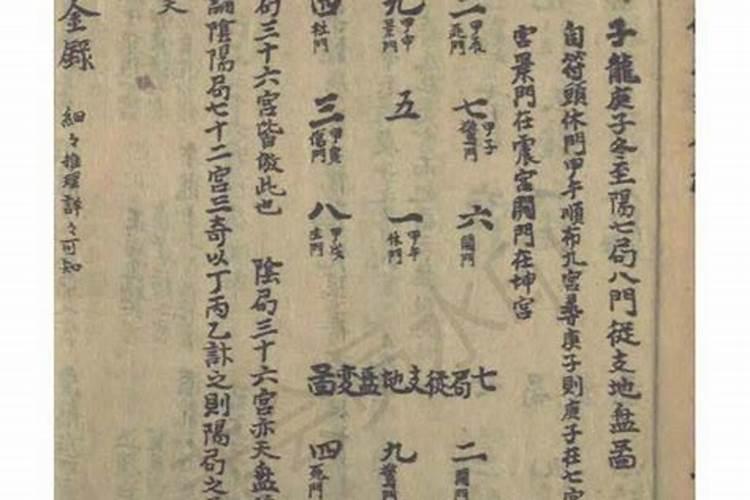 子龍庚子冬至陽七局八門從支地盤啚
旬符頭休門甲午順布九宮尋庚子則庚子在七宮
宮景門在震宮開門在坤宮
二 甲辰 死門
七 甲子 驚門
六 開門
九 甲申 景門
五
一 甲午 休門
四 杜門
三 甲寅 傷門
八 甲戌 生門
七局從支地盤變啚
二 開門
九 驚門
四 死門
局三十六宮皆倣此也 陰局三十六宮亦天盤
論陰陽局七十二宮三奇以丁丙乙訃之則陽局之
天
金錄 細々推理詳々可知